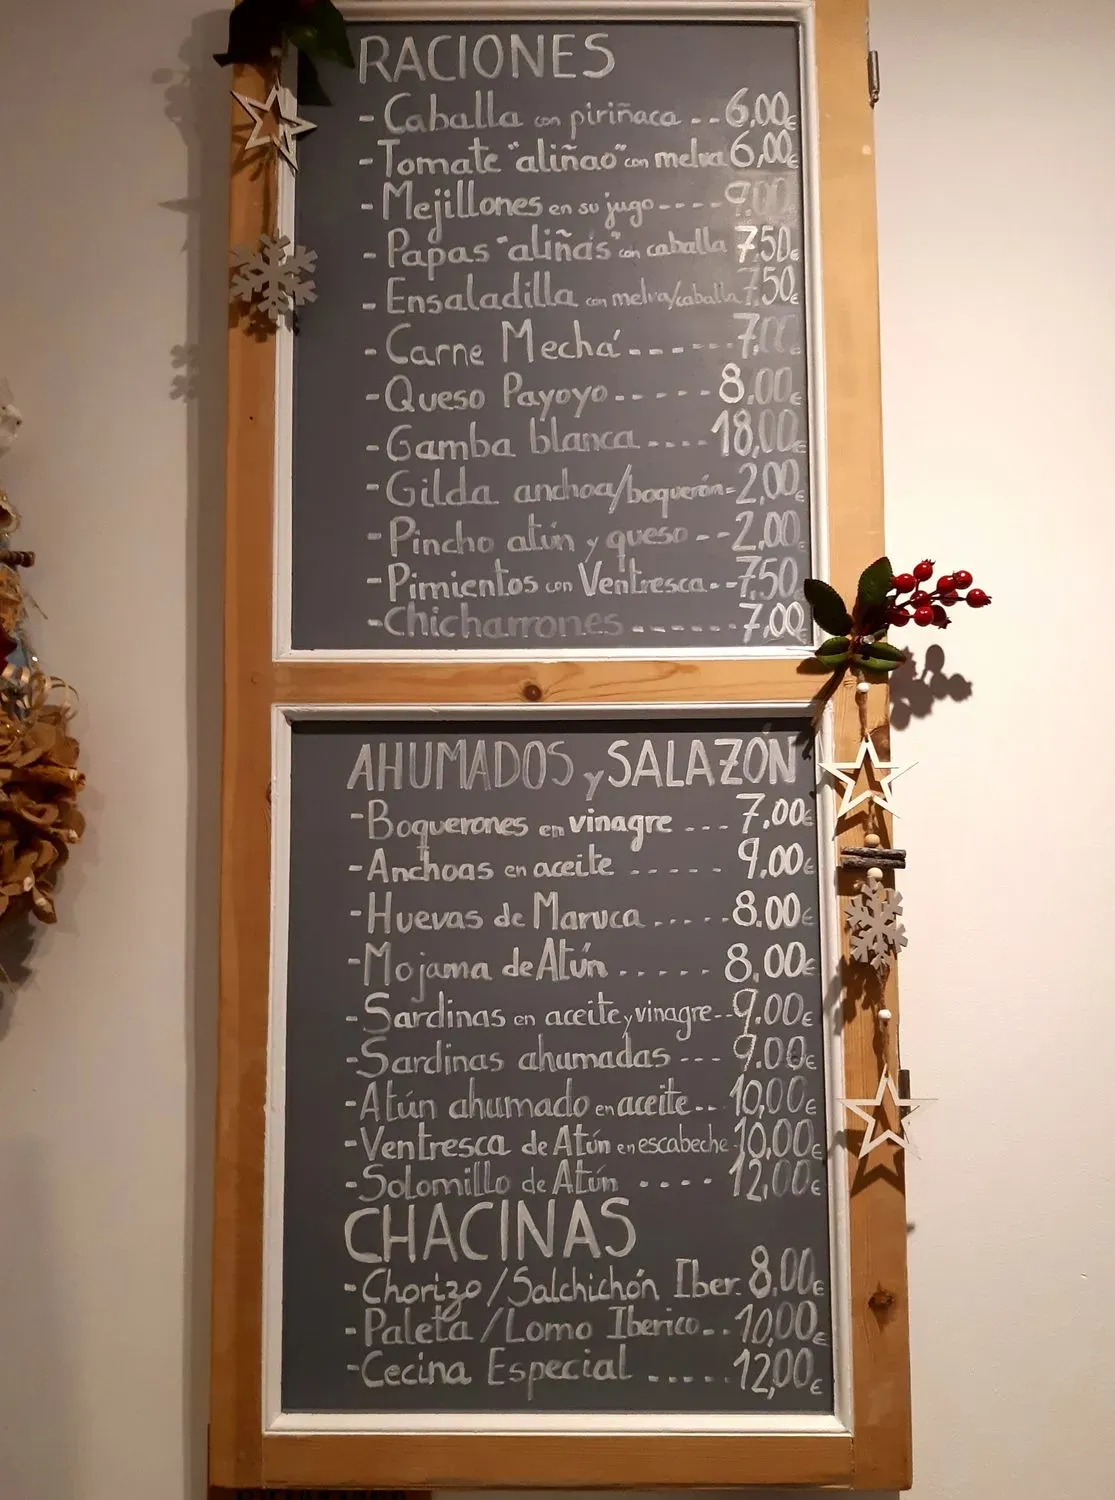 RACIONES
- Caballa con piriñaca -- 6,00€
- Tomate "aliñao" con melva 6,00€
- Mejillones en su jugo ---- 9.00
- Papas "aliñás" con caballa 7.50€
- Ensaladilla con melva/caballa 7.50€
- Carne Mechá ------ 7,00
- Queso Payoyo ----- 8.00€
- Gamba blanca ---- 18,00€
- Gilda anchoa/boquerón - 2,00€
- Pincho atún y queso -- 2.00
- Pimientos con Ventresca -- 7,50
- Chicharrones ------ 7,00
AHUMADOS y SALAZÓN
- Boquerones en vinagre --- 7.00€
- Anchoas en aceite ----- 9.00€
- Huevas de Maruca ..... 8.00€
- Mojama de Atún ..... 8,00€
- Sardinas en aceite y vinagre -- 9.00€
- Sardinas ahumadas --- 9.00€
- Atún ahumado en aceite -- 10,00€
- Ventresca de Atún en escabeche - 10,00€
- Solomillo de Atún ---- 12,00€
CHACINAS
- Chorizo / Salchichón Iber. 8,00€
- Paleta / Lomo Iberico -- 10,00€
- Cecina Especial ..... 12,00€